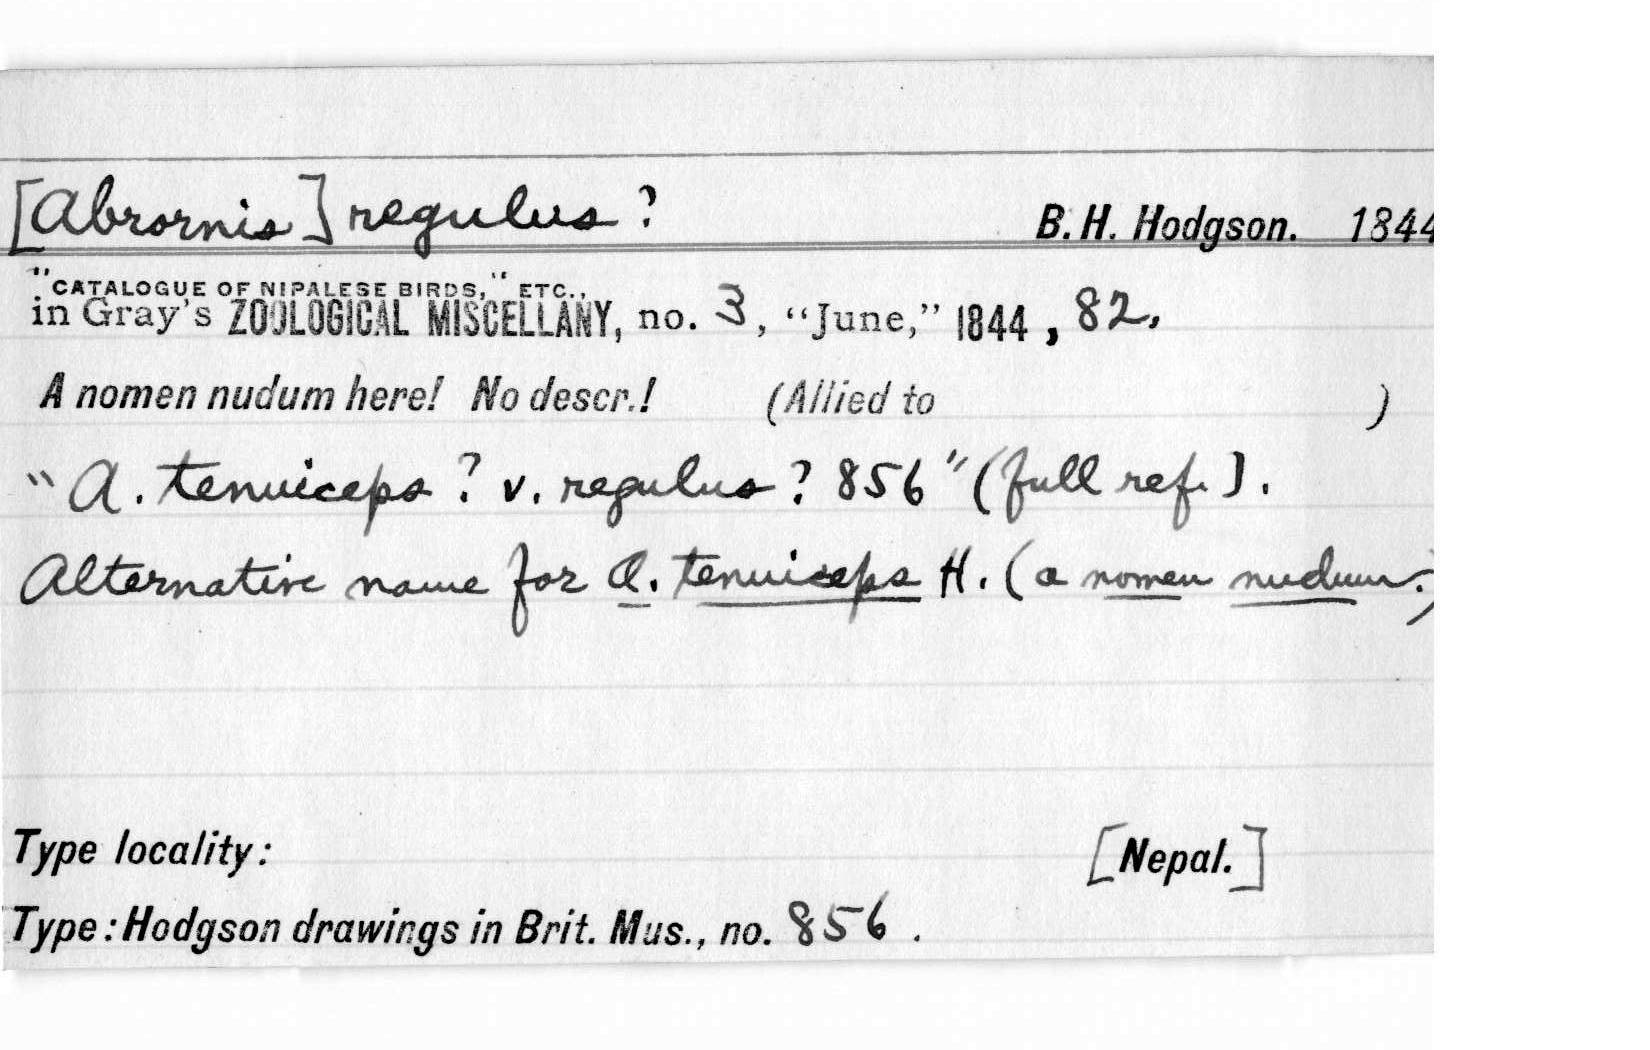 [Abrornis] regulus ? B. H. Hodgson. 1844
"CATALOGUE OF NIPALESE BIRDS," ETC.,
in Gray's ZOOLOGICAL MISCELLANY, no. 3, "June," 1844, 82.
A nomen nudum here! No descr.! (Allied to )
"A. tenuiceps ? v. regulus ? 856" (full ref.).
Alternative name for A. tenuiceps H. (a nomen nudum.)
Type locality: [Nepal.]
Type: Hodgson drawings in Brit. Mus., no. 856.